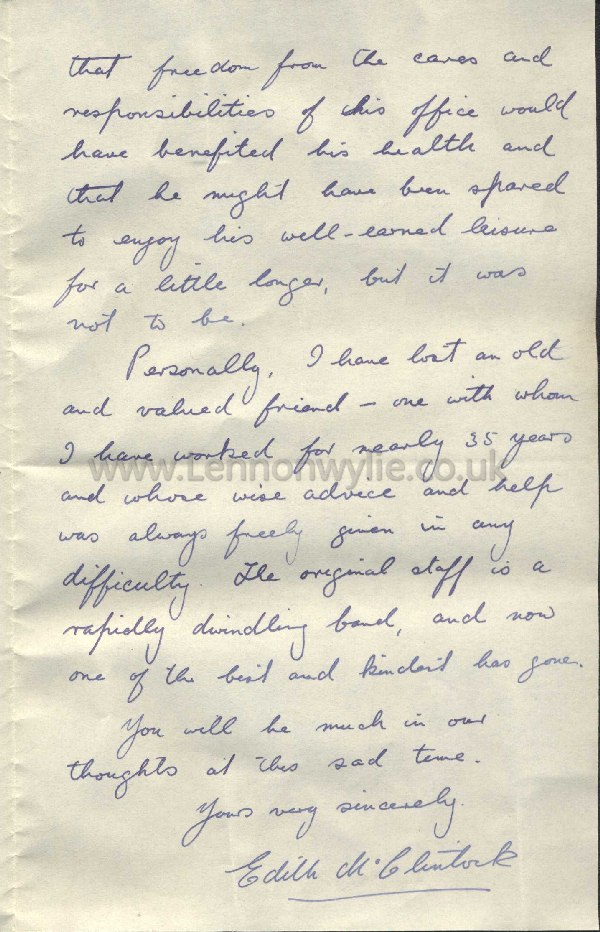 that freedom from the cares and
responsibilities of his office would
have benefited his health and
that he might have been spared
to enjoy his well-earned leisure
for a little longer, but it was
not to be.
Personally, I have lost an old
and valued friend — one with whom
I have worked for nearly 35 years
www.Lennonwylie.co.uk
and whose wise advice and help
was always freely given in any
difficulty. The original staff is a
rapidly dwindling band, and now
one of the best and kindest has gone.
You will be much in our
thoughts at this sad time.
Yours very sincerely.
Edith McClintock